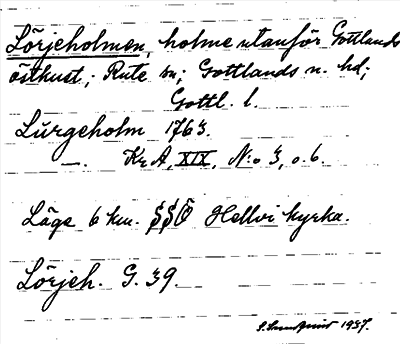 Lörjeholmen, holme utanför Gottlands
östkust; Rute sn; Gottlands n. hd;
Gottl. l.
Lürgeholm 1763.
—. Kr.A, XIX, N:o 3, o. 6.
Läge 6 km. SSÖ Hellvi kyrka.
Lörjeh. G. 39.
1937.